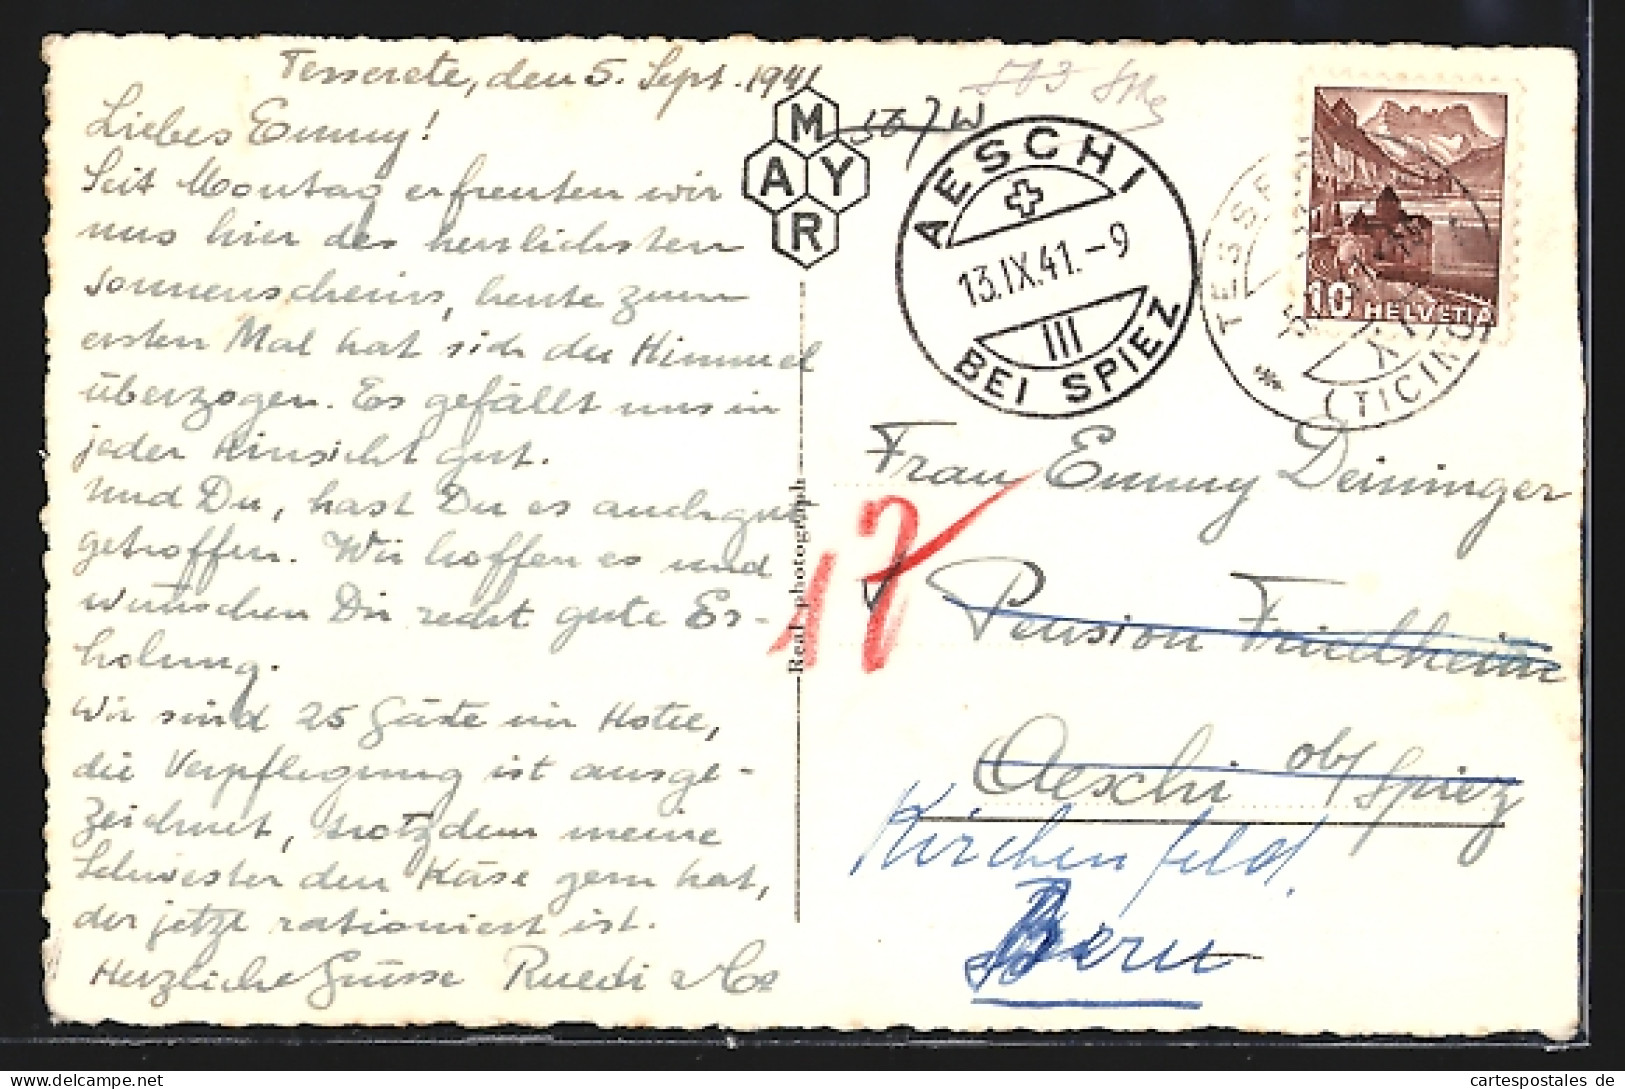 Tesserete, den 5. Sept. 1941
Liebes Emmy!
Seit Montag erfreuten wir
uns hier des herrlichsten
Sonnenscheins, heute zum
ersten Mal hat sich der Himmel
überzogen. Es gefällt uns in
jeder Hinsicht gut.
Und Du, hast Du es auch gut
getroffen. Wir hoffen es und
wünschen Dir recht gute Er-
holung.
Wir sind 25 Gäste im Hotel,
die Verpflegung ist ausge-
zeichnet, trotzdem meine
Schwester den Käse gern hat,
der jetzt rationiert ist.
Herzliche Grüsse Ruedi &
MAYR
Real photograph
AESCHI
13.IX.41.-9
III
BEI SPIEZ
TESSE
(TICINO)
10 HELVETIA
17
Frau Emmy Deininger
Pension Friedheim
Aeschi ob/Spiez
Kirchenfeld.
Bern
cartespostales de